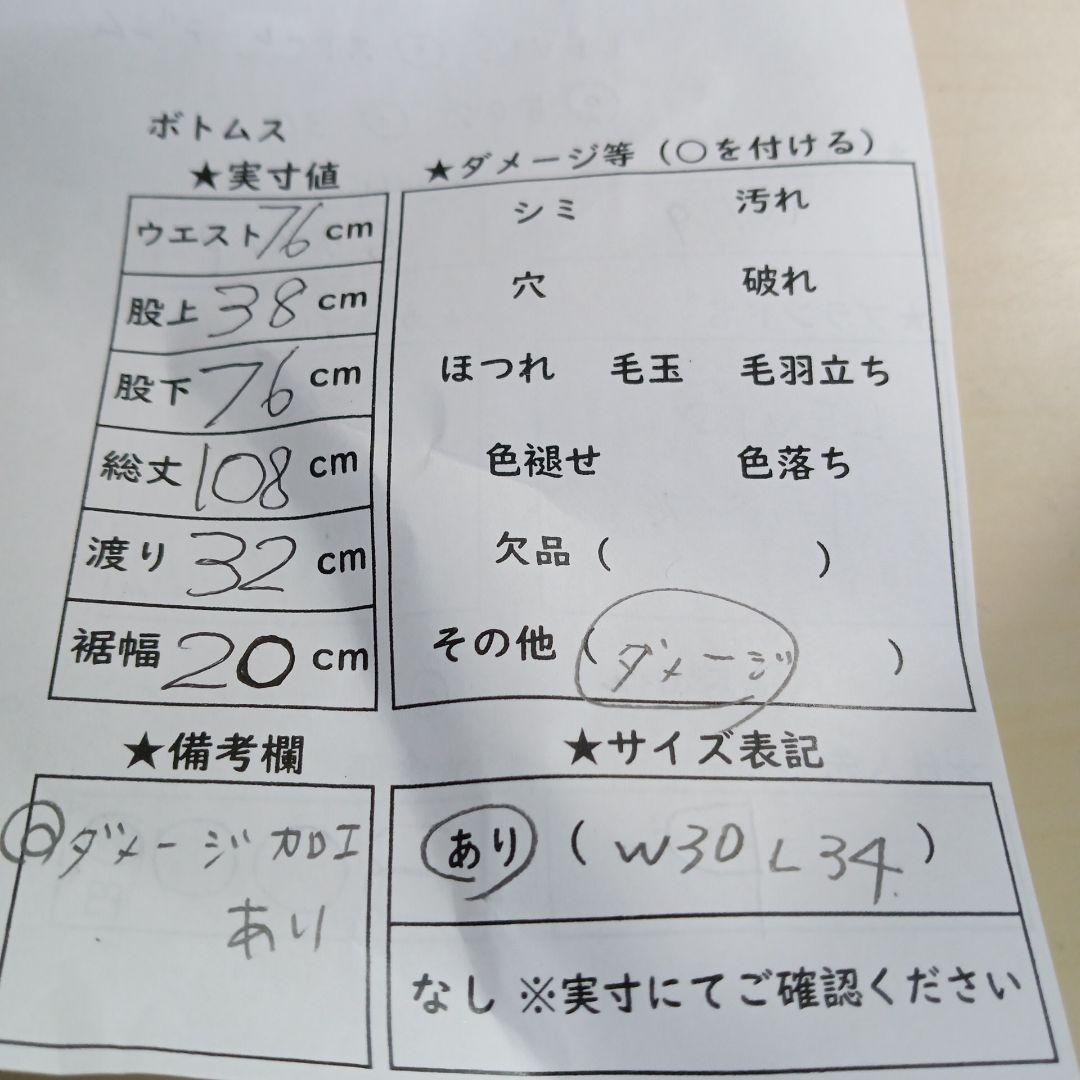 ボトムス
★実寸値
ウエスト76cm
股上38cm
股下76cm
総丈108cm
渡り32cm
裾幅20cm
★ダメージ等（○を付ける）
シミ 汚れ
穴 破れ
ほつれ 毛玉 毛羽立ち
色褪せ 色落ち
欠品（ ）
その他（ダメージ ）
★備考欄
◎ダメージ加工
あり
★サイズ表記
あり（W30 L34.）
なし ※実寸にてご確認ください